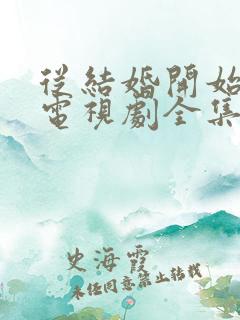 從結婚開始
電視劇全集
史海霞
未經同意禁止轉載